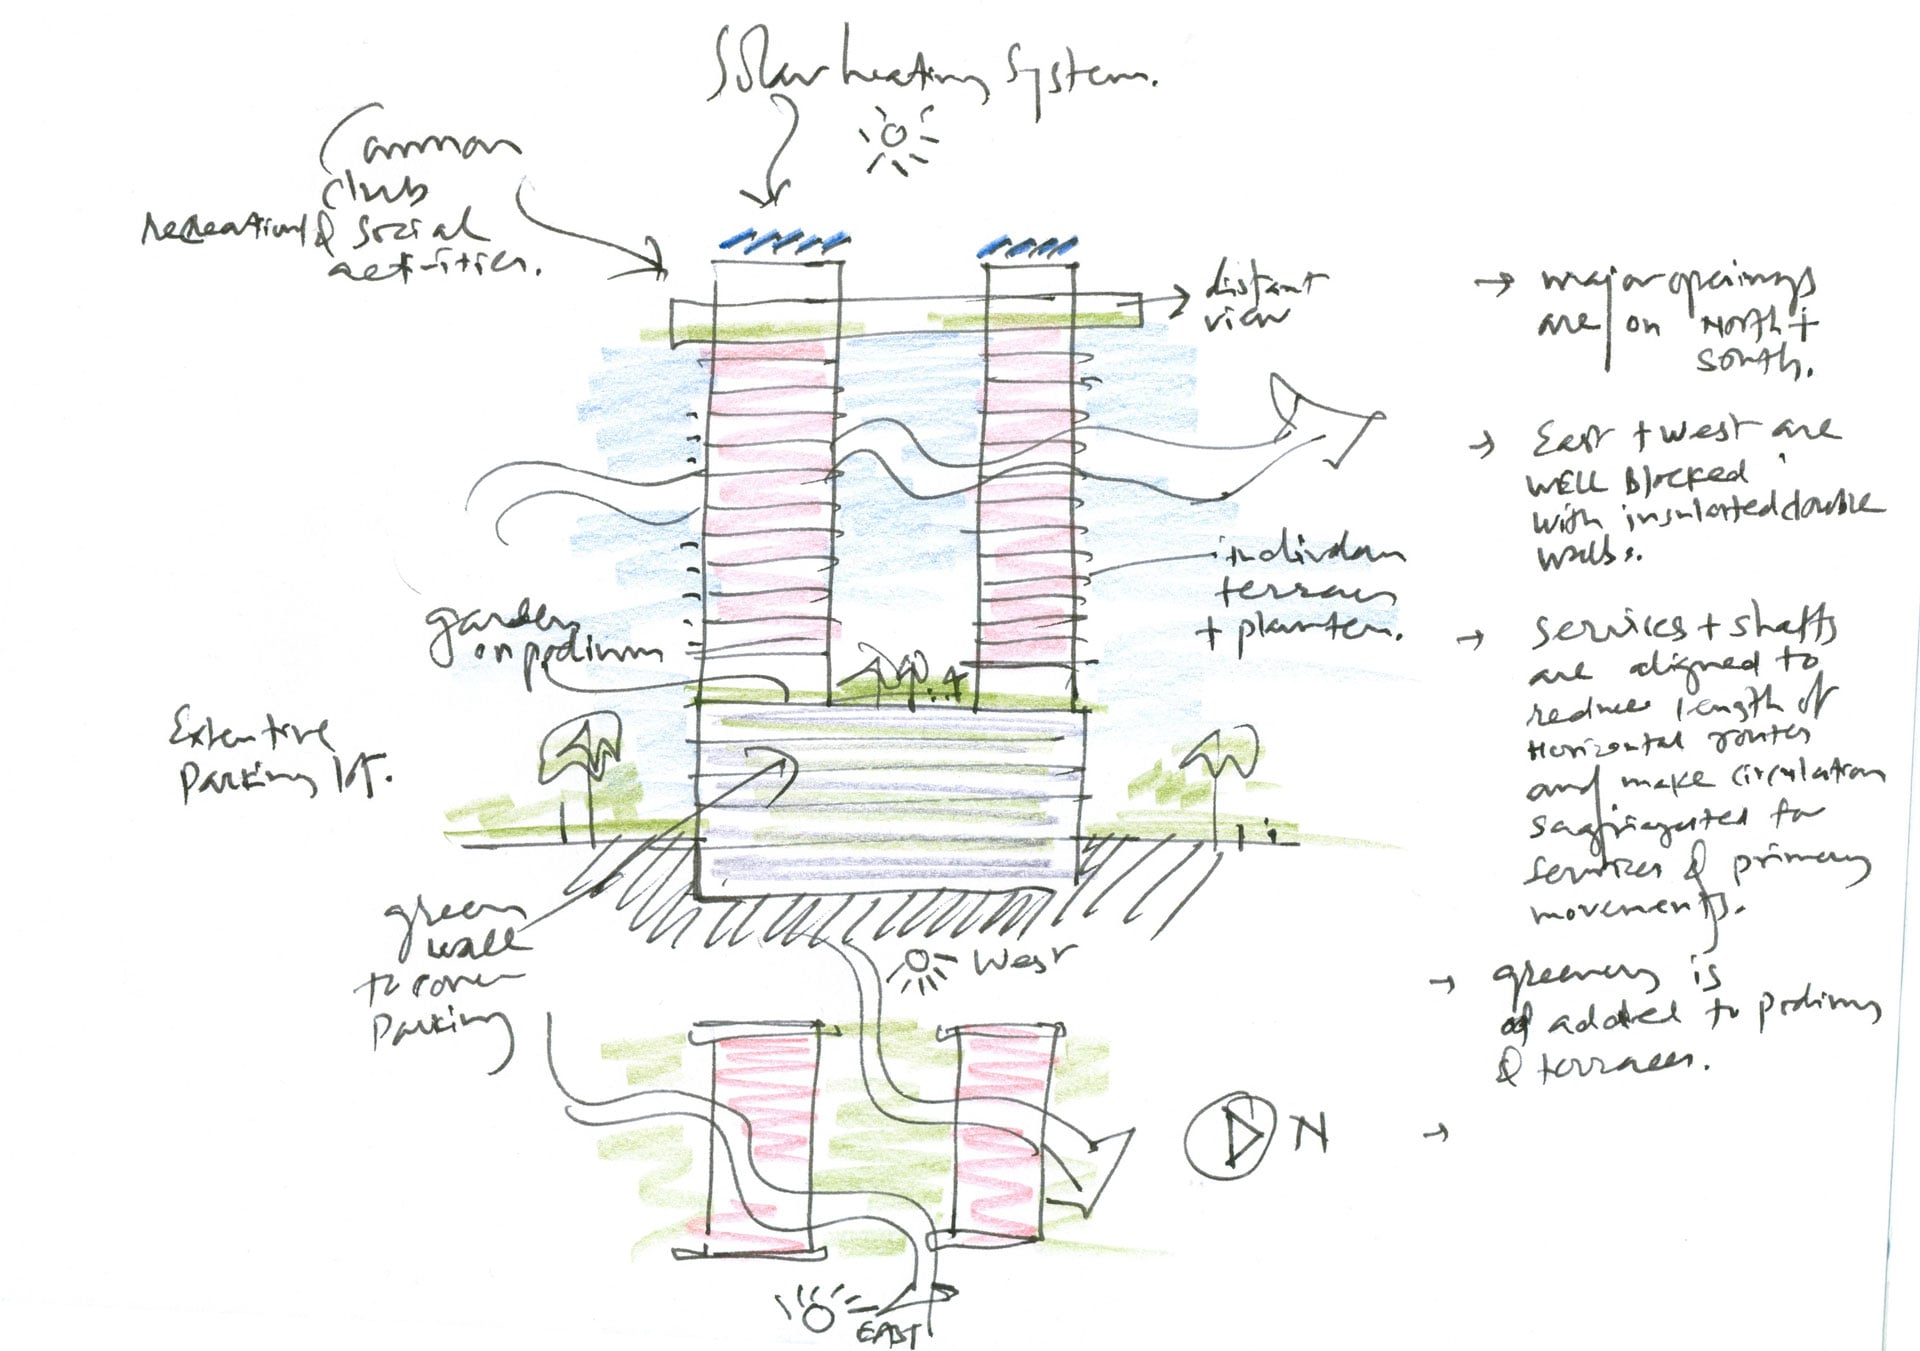 Solar heating System.
Common
club
recreational & Social
activities.
distant
view
garden
on podium
individual
terraces
+ planters.
Extentive
Parking lot.
green
wall
to cover
Parking
West
N
EAST
→ major openings
are on North +
south.
→ East + west are
WELL Blocked
with insulated double
walls.
→ services + shafts
are aligned to
reduce length of
Horizontal routes
and make circulation
for
services & primary
movements.
→ greenery is
added to podium
& terraces.
→